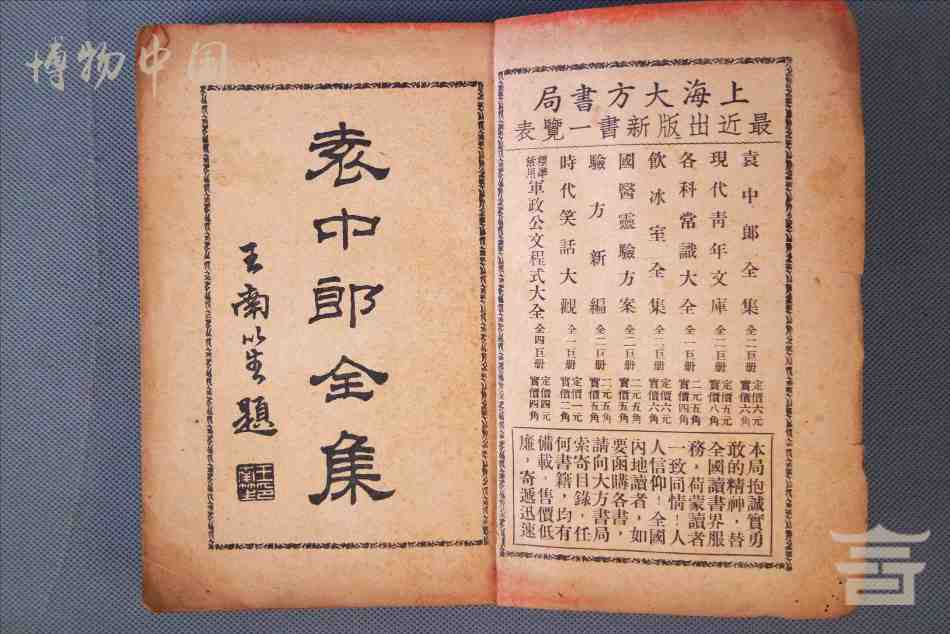 博物中国
上海大方書局
最近出版新書一覽表
袁中郎全集 全二巨册 定價六元 實價六角
現代青年文庫 全二巨册 定價五元 實價八角
各科常識大全 全一巨册 二元五角 實價五角
飲冰室全集 全二巨册 定價六元 實價六角
國醫靈驗方案 全二巨册 二元五角 實價五角
驗方新編 全二巨册 二元五角 實價五角
時代笑話大觀 全一巨册 定價一元 實價二角
標準活用軍政公文程式大全 全四巨册 定價四元 實價四角
本局抱誠實勇
敢的精神，替
全國讀書界服
務，荷蒙讀者
一致同情！人
人信仰！全國
內地讀者，如
要函購各書，
請向大方書局
索寄目錄，任
何書籍，均有
備載，售價低
廉，寄遞迅速
袁中郎全集
王南笙題